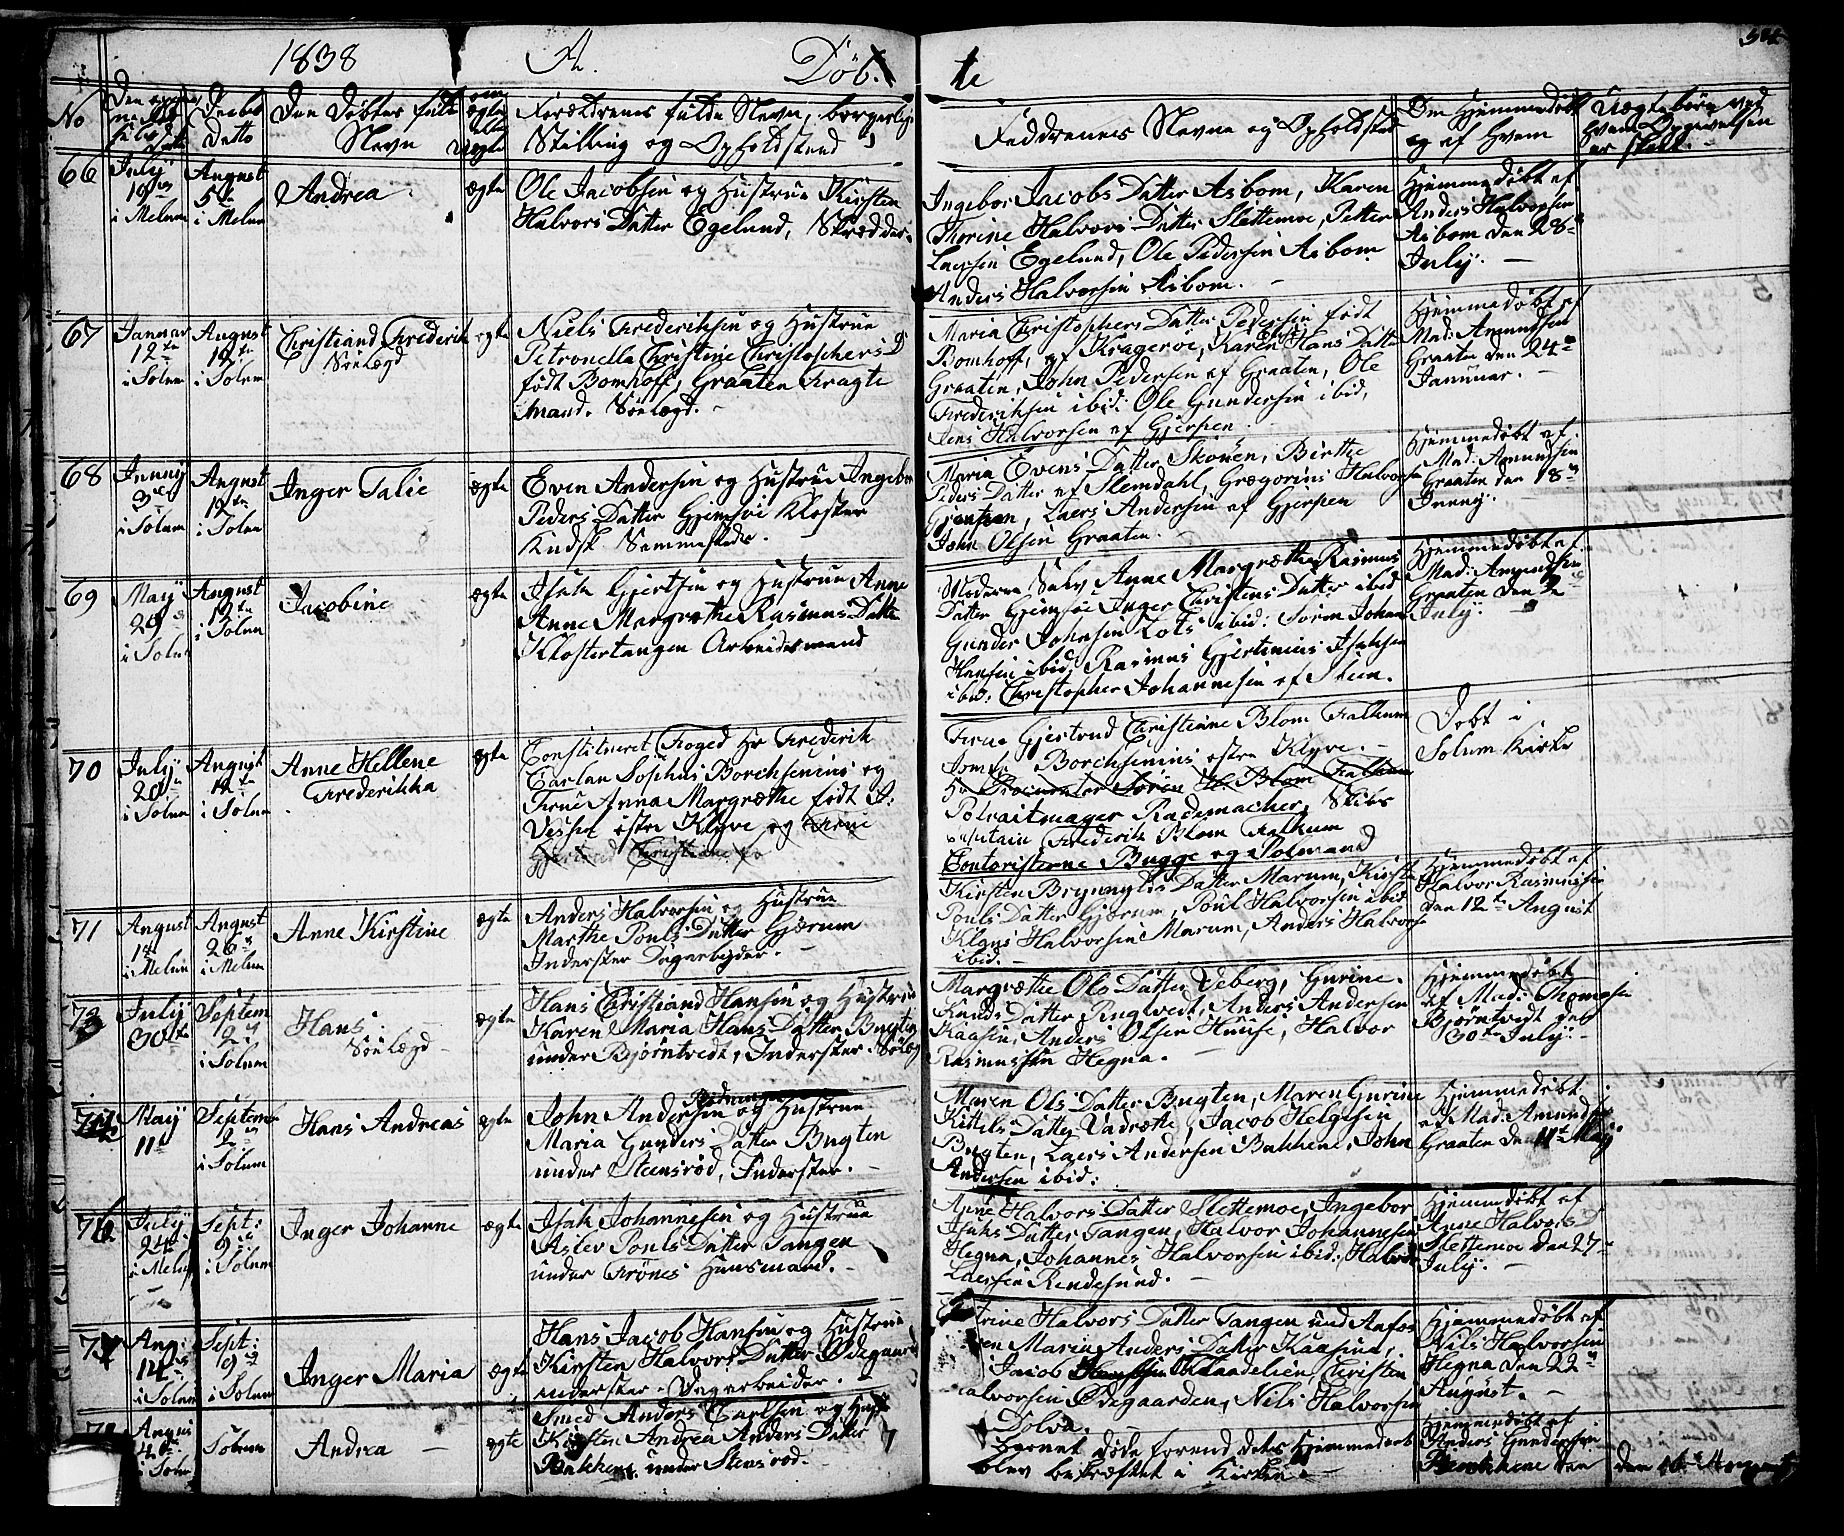 1838 A. Døb- te
No
Datto
Den Døbtes fulde
Navn
ægte
eller
Uægte
Forældrenes fulde Navn, borgerlige
Stilling og Opholdsted
Faddrenes Navne og Opholdsted
Om Hjemmedøbt
og af hvem
Uægte børn ved
hvem Opgivelsen
er skeet.
66
July
i Melum
August
5te
i Melum
Andrea
ægte
Ole Jacobsen og Hustrue Kirsten
Halvors Datter Egelund, Skrædder.
Ingebor Jacobs Datter Aasbom, Karen
Thorine Halvors Datter Slettemoe, Petter
Larsen Egelund, Ole Pedersen Aasbom
Anders Halvorsen Aasbom.
Hjemmedøbt af
Anders Halvorsen
Aasbom den 28
July.
67
Januar
12te
i Solum
August
12te
i Solum
Christiand Frederik
Sønlægd
ægte
Niels Frederiksen og Hustrue
Petronella Christine Christophers D
født Bomhoff, Graaten Fragte
mand. Sønlægd.
Maria Christophers Datter Pedersen født
Bomhoff, af Kragerøe, Karen Hans Datter
Graaten, John Pedersen af Graaten, Ole
Frederiksen ibid: Ole Gundersen ibid,
Jens Halvorsen af Gjerpen.
Hjemmedøbt af
Mad: Amundsen
Graaten den 24
Januar.
68
3
i Solum
August
12te
i Solum
Inger Talie
ægte
Even Andersen og Hustrue Ingebor
Peders Datter Gjemsøe Kloster
Sammesteds.
Maria Evens Datter Skouen, Birthe
Peders Datter af Slemdahl, Grægorius Halvorsen
Gjerpen, Laers Andersen af Gjerpen
John Olsen Graaten.
Hjemmedøbt af
Mad: Amundsen
Graaten den 18
69
May
20
i Solum
August
12te
i Solum
Jacobine
ægte
Isak Gjertsen og Hustrue Anne
Anne Margrethe Rasmus Datter
Klostertangen Arbeidsmand
Moderen Selv Anne Margrethe Rasmus
Datter Gjemsøe Inger Christens Datter ibid
Gunder Johnsen Lots ibid: Søren Johan
Hansen ibid: Rasmus Gjertinius Isaksen
ibid: Christopher Johannesen af Skien.
Hjemmedøbt af
Mad: Amundsen
Graaten den 2
July.
70
July
20
i Solum
August
12te
i Solum
Anne Hellene
Frederikka
ægte
Constitueret Foged Hr Frederik
Carlan Sophus Borchsenius og
Frue Anna Margrethe født
østre Klyve og Frue
Gjertrud Christiane
Frue Gjertrud Christiane Blom Falkum
Jomfr Borchsenius østre Klyve.
Hr Procurator Søren H. Blom Falkum
Rademacher, Skibs
Frederik Blom Falkum
Contoristerne Bugge og Solmand
Døbt i
Solum Kirke
71
August
i Melum
August
26
i Melum
Anne Kirstine
ægte
Anders Halvorsen og Hustrue
Marthe Pouls Datter Gjærum
Inderster Dagarbyder.
Kirsten Brynnylds Datter Marum, Kirsten
Pouls Datter Gjærum, Poul Halvorsen ibid
Klaus Halvorsen Marum, Anders Halvorsen
ibid.
Hjemmedøbt af
Halvor Rasmussen
den 12te August
73
July
30te
Septem
2
i Solum
Hans
Sønlægd
ægte
Hans Christiand Hansen og Hustrue
Karen Maria Hans Datter Bugten
under Bjørntvedt, Inderster.
Margrethe Ols Datter Veberg, Gurine
Knuds Datter Ruglvedt, Anders Andersen
Kaasen, Anders Olsen Huuse, Halvor
Rasmussen Hegna.
Hjemmedøbt
af Mad: Thomasen
Bjørntvedt den
30te July.
74
May
11
Septemb
2
i Solum
Hans Andreas
ægte
John Andersen og Hustrue
Maria Gunders Datter Bugten
under Steensrød, Inderster.
Maren Ols Datter Bugten, Maren Gurine
Kittils Datter Vadrette, Jacob Helgesen
Bugten, Laers Andersen Bakkene, John
Andersen ibid:
Hjemmedøbt
af Mad: Amundsen
Graaten den 11te May
76
July
24
i Melum
Sept:
9
i Solum
Inger Johanne
ægte
Isak Johannesen og Hustrue
Aslev Pouls Datter Tangen
under Frønes Huusmand.
Anne Halvors Datter Slettemoe, Ingebor
Isaks Datter Tangen, Halvor Johannesen
Hegna, Johannes Halvorsen ibid: Halvor
Laersen Rendesund.
Hjemmedøbt af
Anne Halvors D
Slettemoe den 27
July.
77
Aug:
i Solum
Sept:
9
i Solum
Inger Maria
ægte
Hans Jacob Hansen og Hustrue
Kirsten Halvors Datter Ødegaard
inderster. Dagarbeider.
Halvors Datter Tangen und Aafos
Maria Anders Datter Kaasene,
Jacob Christen
Halvorsen Ødegaarden, Nils Halvorsen
Dolva.
Hjemmedøbt af
Nils Halvorsen
Hegna den 22
August.
August
i Solum
Solum
Andrea
ægte
Smed Anders Carlsen og Hust
Kirsten Andrea Anders Datter
Bakken under Steensrød.
Barnet døde forend dets Hjemmedaab
blev bekræftet i Kirken.
Hjemmedøbt af
Anders Gundersen
Bakkene den
den 16 August